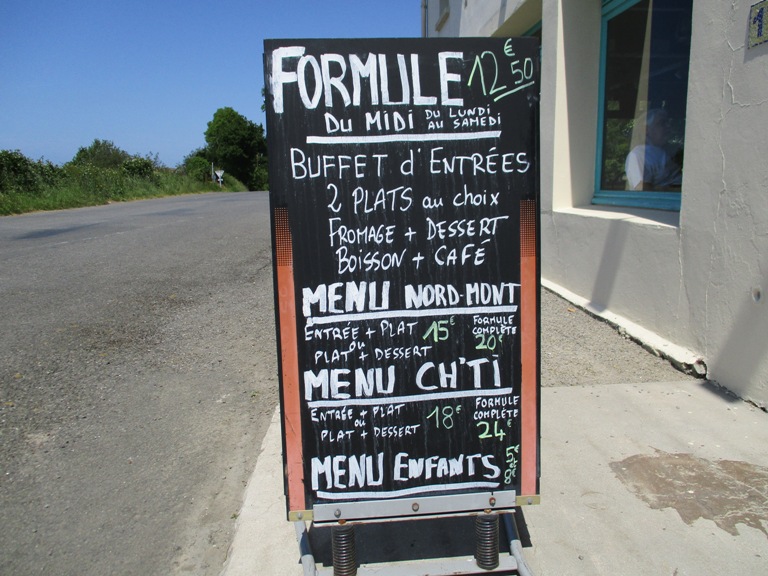 FORMULE 12€50
DU MIDI DU LUNDI AU SAMEDI
BUFFET d'ENTRÉES
2 PLATS au choix
FROMAGE + DESSERT
BOISSON + CAFÉ
MENU NORD-MONT
ENTRÉE + PLAT 15€ FORMULE COMPLÈTE
ou 20€
PLAT + DESSERT
MENU CH'TI
ENTRÉE + PLAT 18€ FORMULE COMPLÈTE
ou 24€
PLAT + DESSERT
MENU ENFANTS 5€
8€